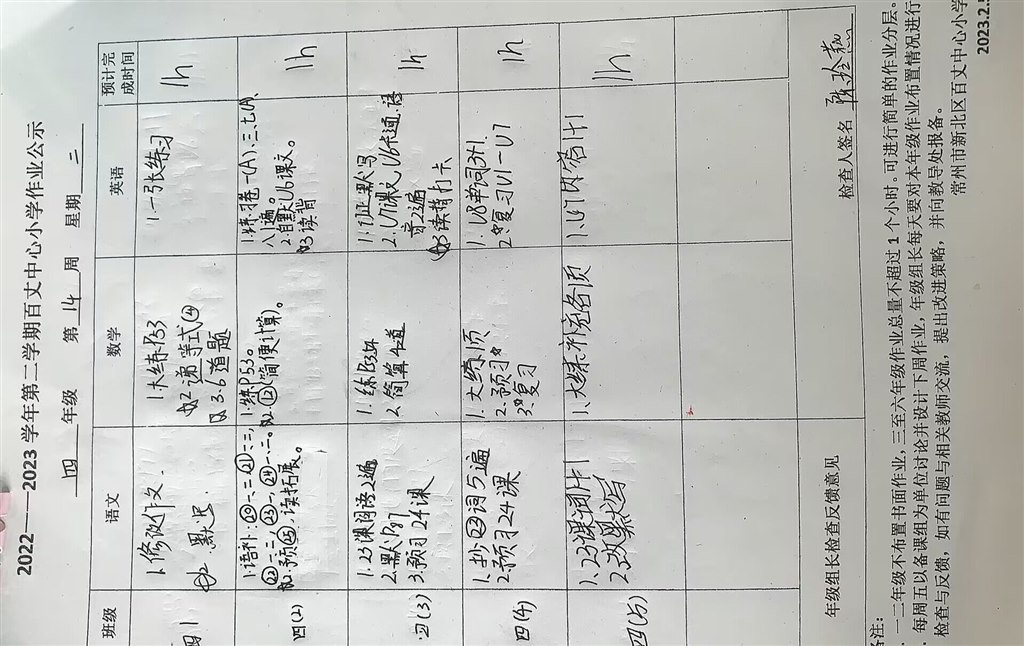 2022——2023 学年第二学期百丈中心小学作业公示
四 年级 第 14 周 星期 二
班级 语文 数学 英语 预计完成时间
四1
1.修改作文.
2 默
1.大练P53
2 递等式④
3.6道题
1.一张练习
1h
四(2)
1.语补:⑲一、二㉑一、二,
㉒一、二㉓一、㉔一、二。
2.预㉕. 读拓展。
1.练P53。
2.⑫(简便计算)。
1.练习卷一(A)、三、七(A)、
八1遍。
2.自默U6课文。
3 读背
1h
四(3)
1.23课词语2遍
2.默P87
3.预习24课
1.练P53
2.简算4道
1.订正默写
2.U7课文,U6卡通.语
音2遍
3 读背打卡
1h
四(4)
1.抄㉒词5遍
2.预习24课
1.大练1页
2.预习
3.复习
1.U8单词3+1.
2.复习U1-U7
1h
四(5)
1.23课词1+1
2.改默写
1.大练、补充各1页
1.U7内容1+1
1h
年级组长检查反馈意见
检查人签名
备注:
一二年级不布置书面作业,三至六年级作业总量不超过 1 个小时。可进行简单的作业分层。
每周五以备课组为单位讨论并设计下周作业。年级组长每天要对本年级作业布置情况进行
检查与反馈,如有问题与相关教师交流,提出改进策略,并向教导处报备。
常州市新北区百丈中心小学
2023.2.5